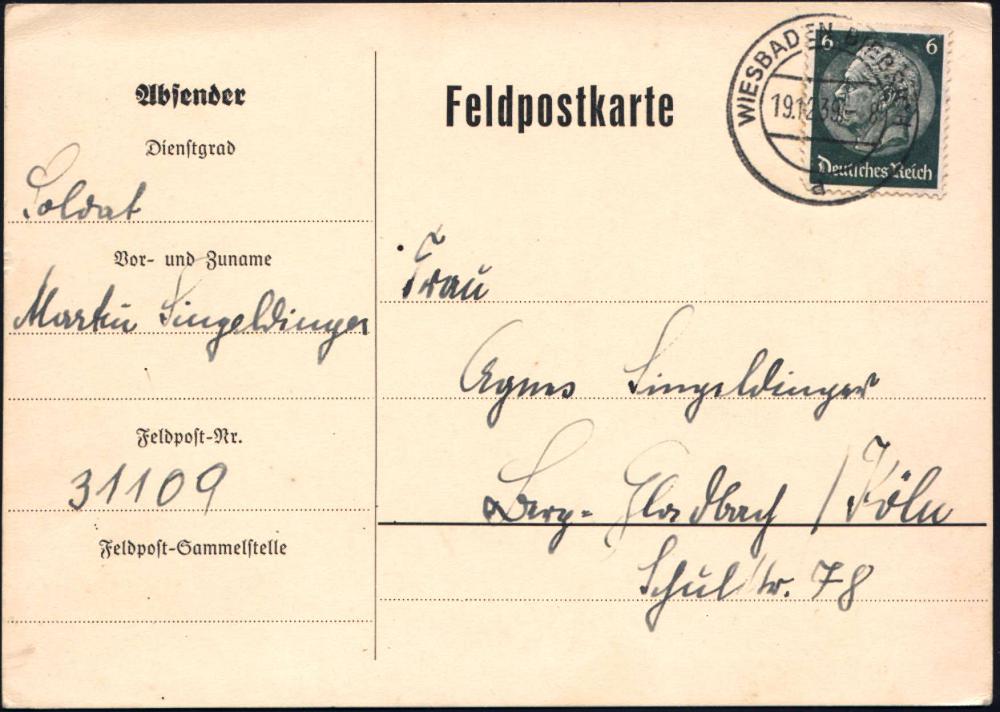 Absender
Dienstgrad
Soldat
Vor- und Zuname
Martin Singeldinger
Feldpost-Nr.
31109
Feldpost-Sammelstelle
Feldpostkarte
WIESBADEN-BIEBRICH
19.12.39.- 8
a
6 6
Deutsches Reich
Frau
Agnes Singeldinger
Berg-Gladbach / Köln
Schulstr. 78